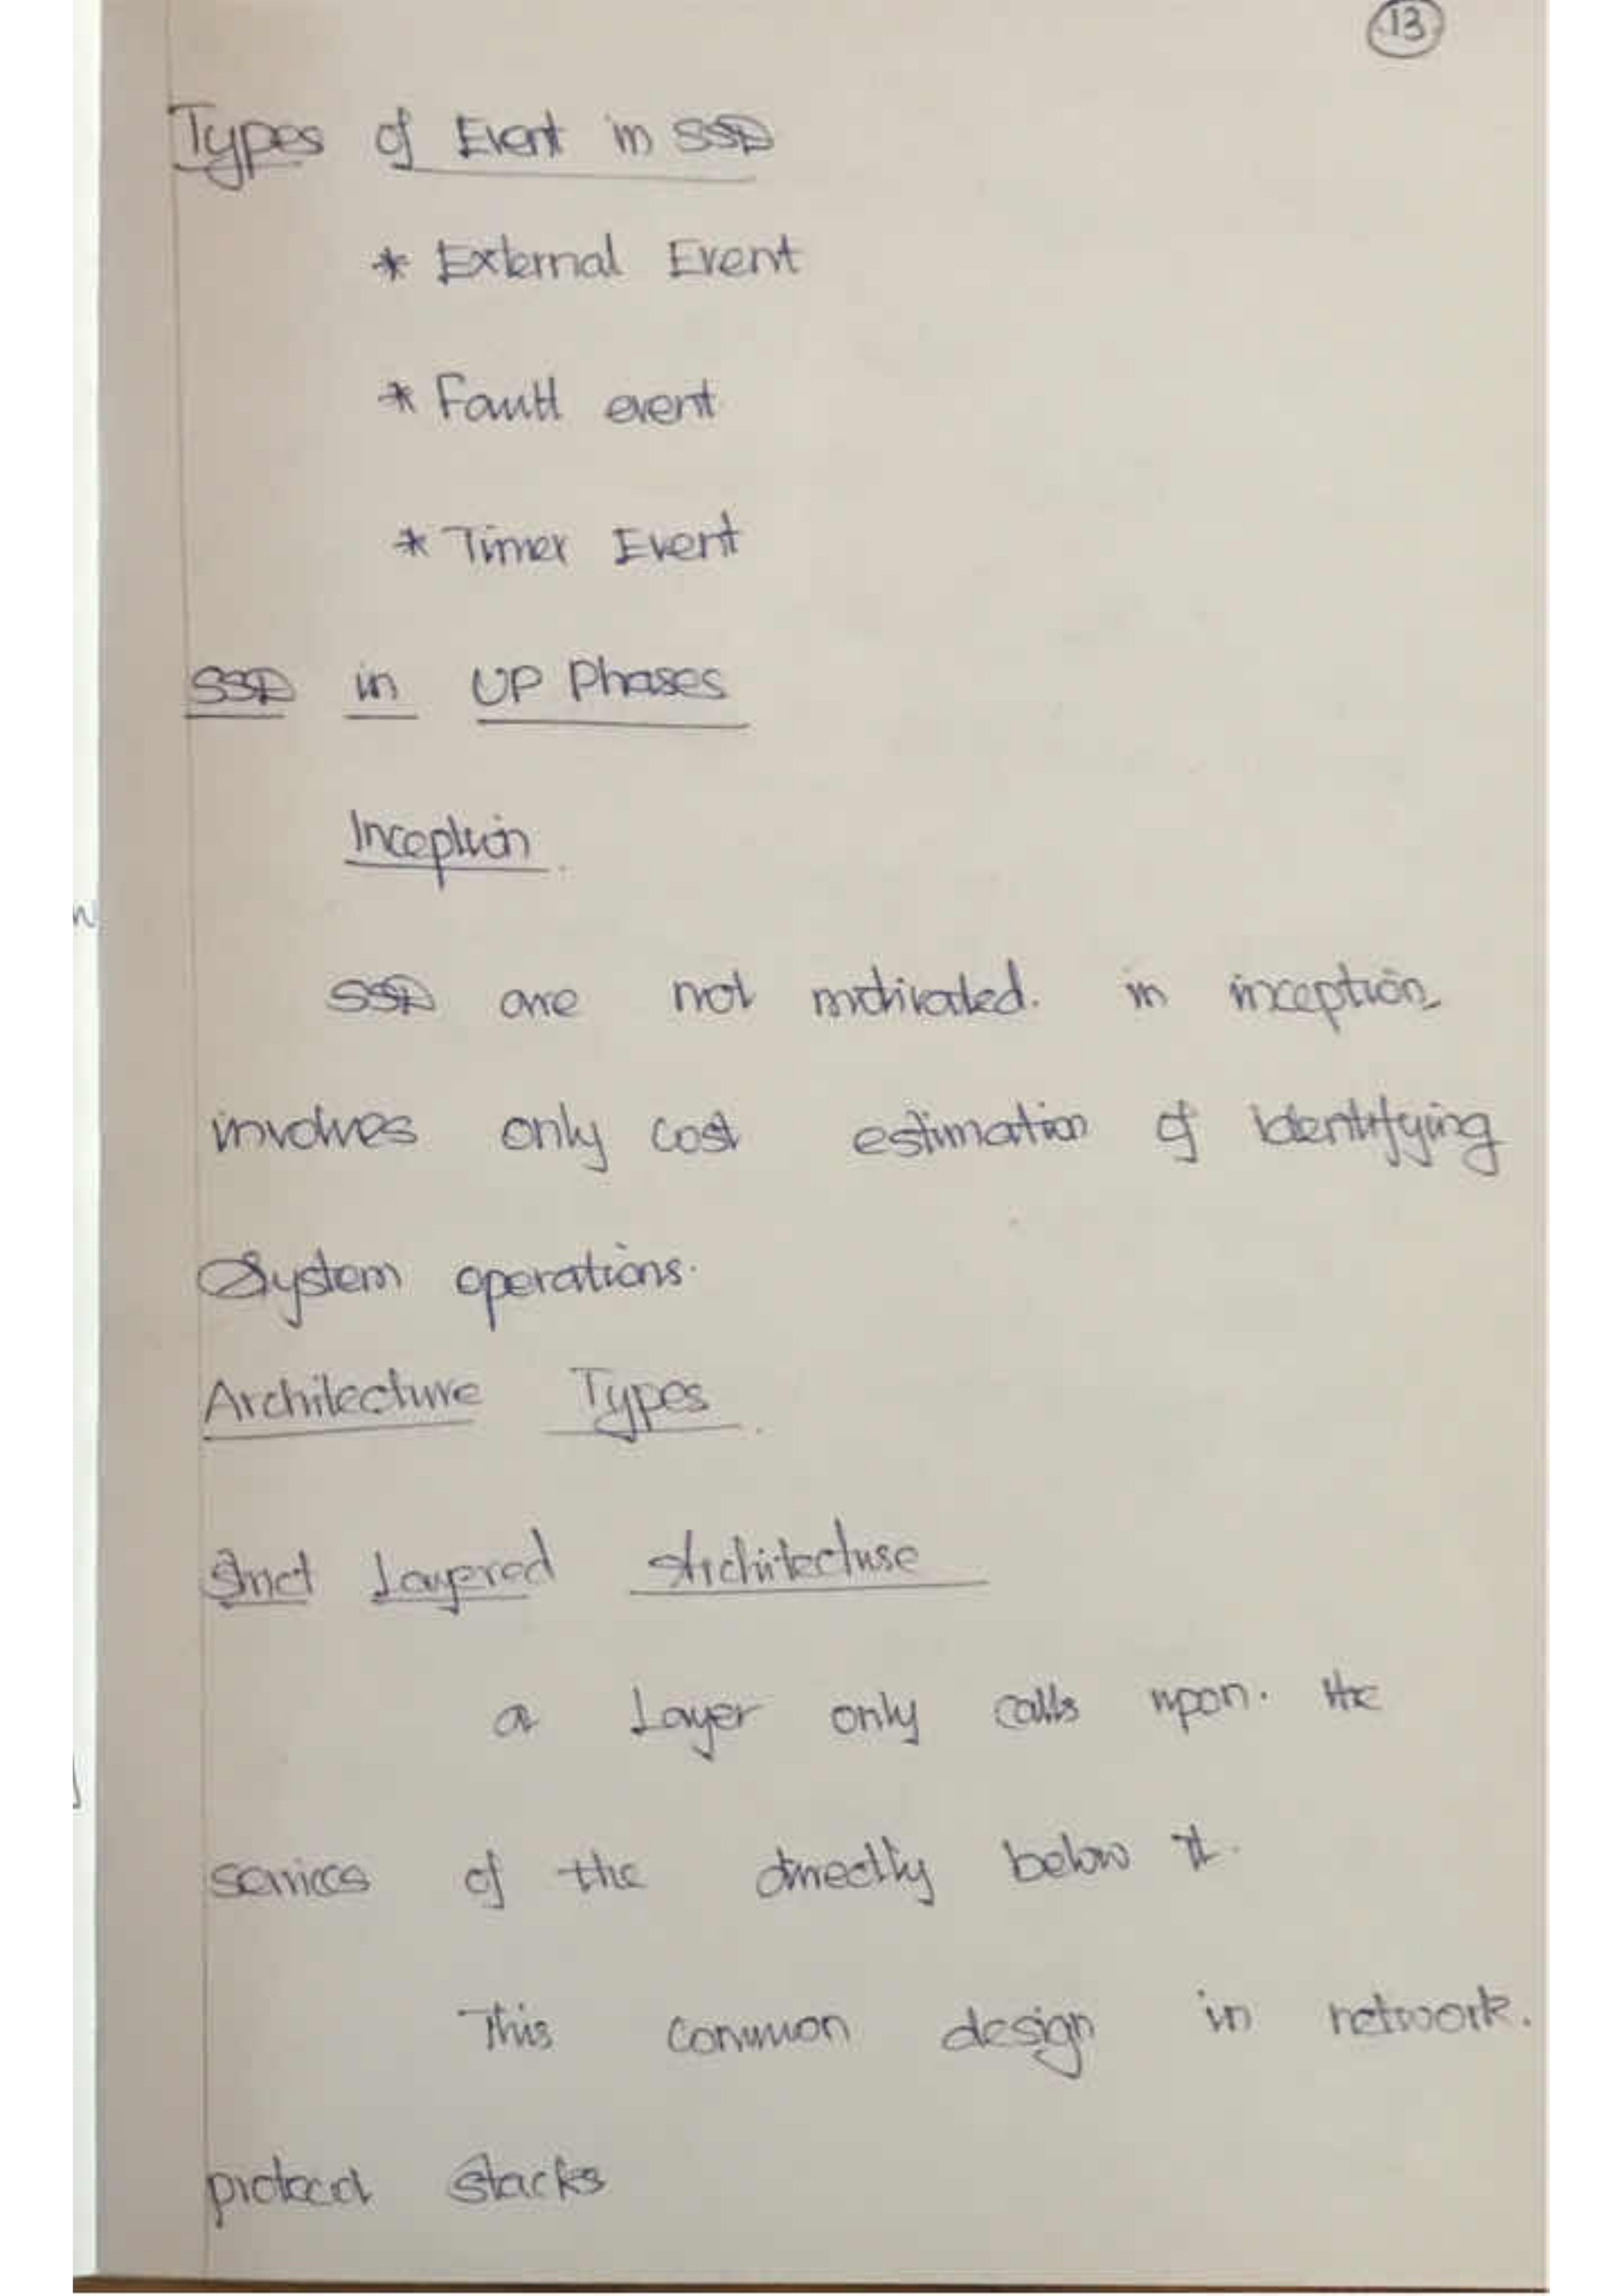 13
Types of Event in SSD
* External Event
* Fault event
* Timer Event
SSD in UP Phases
Inception.
SSD are not motivated. in inception
involves only cost estimation of identifying
System operations.
Architecture Types.
Strict Layered Architecture
a Layer only calls upon. the
services of the directly below it.
This common design in network.
protocol stacks